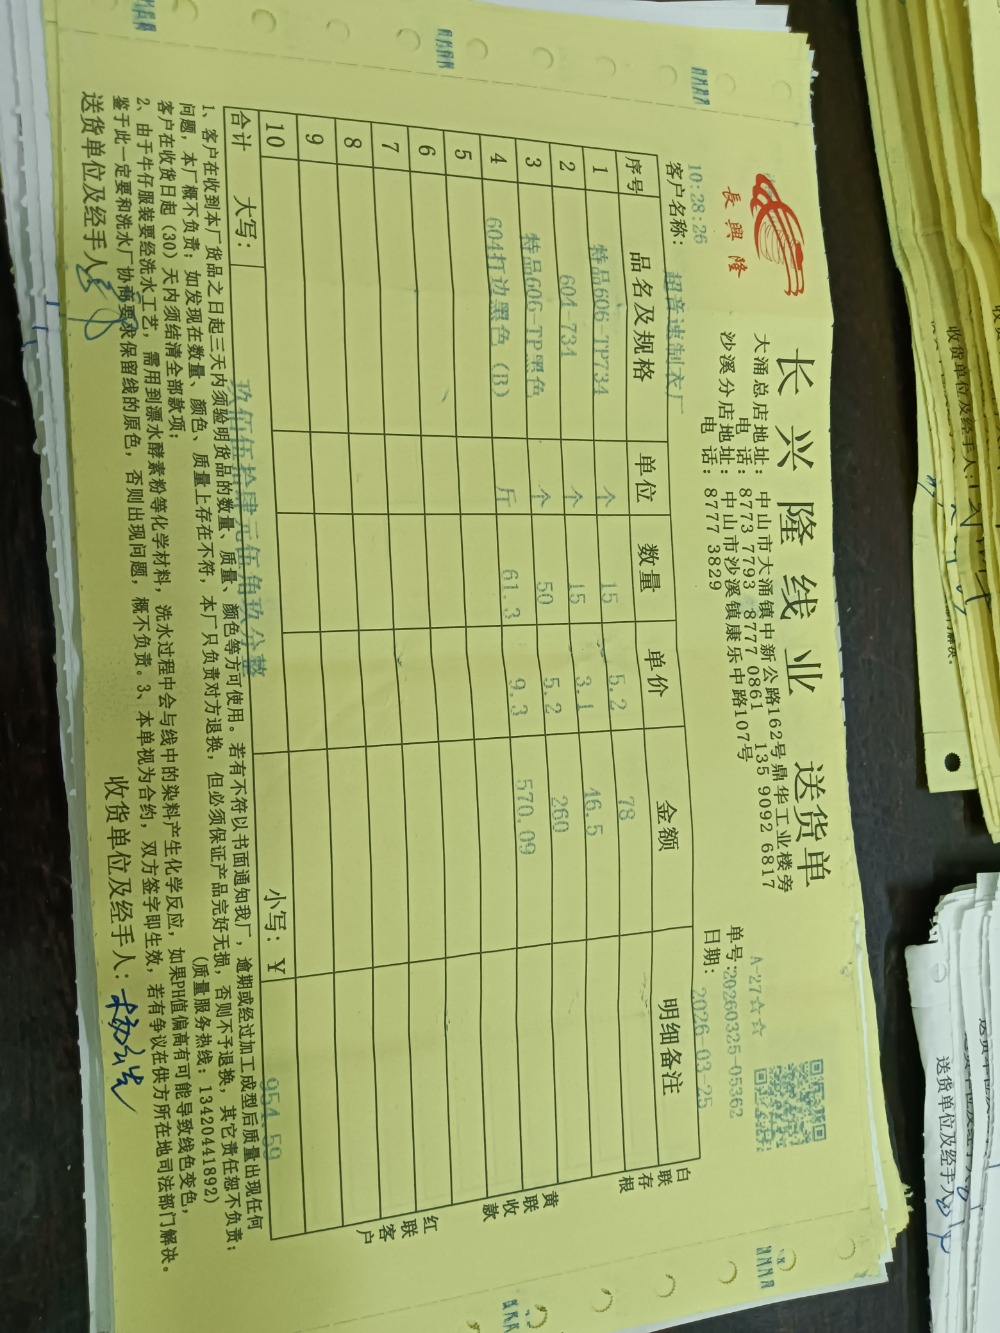 長興隆
长兴隆线业 送货单
大涌总店地址：中山市大涌镇中新公路162号鼎华工业楼旁
电话：8773 7793 8777 0861 135 9092 6817
沙溪分店地址：中山市沙溪镇康乐中路107号
电话：8777 3829
A-27☆☆
单号:20260325-05362
日期：2026-03-25
10:28:26
客户名称：超音速制衣厂
序号 品名及规格 单位 数量 单价 金额 明细备注
1 特品606-TP734 个 15 5.2 78
2 604-734 个 15 3.1 46.5
3 特品606-TP黑色 个 50 5.2 260
4 604打边黑色（B） 斤 61.3 9.3 570.09
5
6
7
8
9
10
合计 大写：玖佰伍拾肆元伍角玖分整 小写：￥ 954.59
白联存根
黄联收款
红联客户
1、客户在收到本厂货品之日起三天内须验明货品的数量、质量、颜色等方可使用。若有不符以书面通知我厂，逾期或经过加工成型后质量出现任何
问题，本厂概不负责；如发现在数量、颜色、质量上存在不符，本厂只负责对方退换，但必须保证产品完好无损，否则不予退换，其它责任恕不负责；
客户在收货日起（30）天内须结清全部款项； (质量服务热线：13420441892)
2、由于牛仔服装要经洗水工艺，需用到漂水酵素粉等化学材料，洗水过程中会与线中的染料产生化学反应，如果PH值偏高有可能导致线色变色，
鉴于此一定要和洗水厂协商要求保留线的原色，否则出现问题，概不负责。3、本单视为合约，双方签字即生效，若有争议在供方所在地司法部门解决。
送货单位及经手人：
收货单位及经手人：
收货单位及经手人:
送货单位及经手人